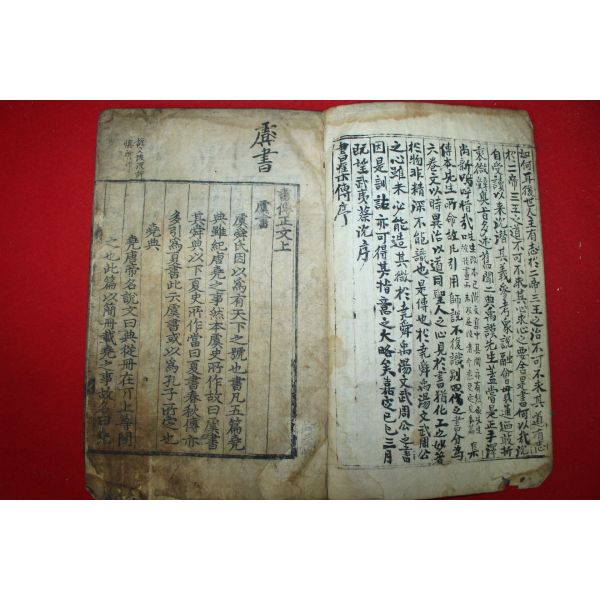 如何耳後世人主有志於二帝三王之治不可不求其道有志
於二帝三王之道不可不求其心求心之要舍是書何以哉沈
自受讀以來沈潛其義參考衆說融會貫通迺敢折
衷微辭奧旨多述舊聞二典禹謨先生蓋嘗是正手澤
尚新嗚呼惜哉
傳本先生所命故凡引用師說不復識別四代之書分爲
六卷文以時異治以道同聖人之心見於書猶化工之妙著
於物非精深不能識也是傳也於堯舜禹湯文武周公
之心雖未必能造其微於堯舜禹湯文武周公之書
因是訓詁亦可得其指意之大略矣嘉定己巳三月
旣望武夷蔡沈序
書集傳序
虞書
說文後漢許
愼所作
書傳正文上
虞書
虞舜氏因以爲有天下之號也書凡五篇堯
典雖紀唐堯之事然本虞史所作故曰虞書
其舜典以下夏史所作當曰夏書春秋傳亦
多引爲夏書此云虞書或以爲孔子所定也
堯典
堯唐帝名說文曰典從冊在丌上尊閣
之也此篇以簡冊載堯之事故名曰堯